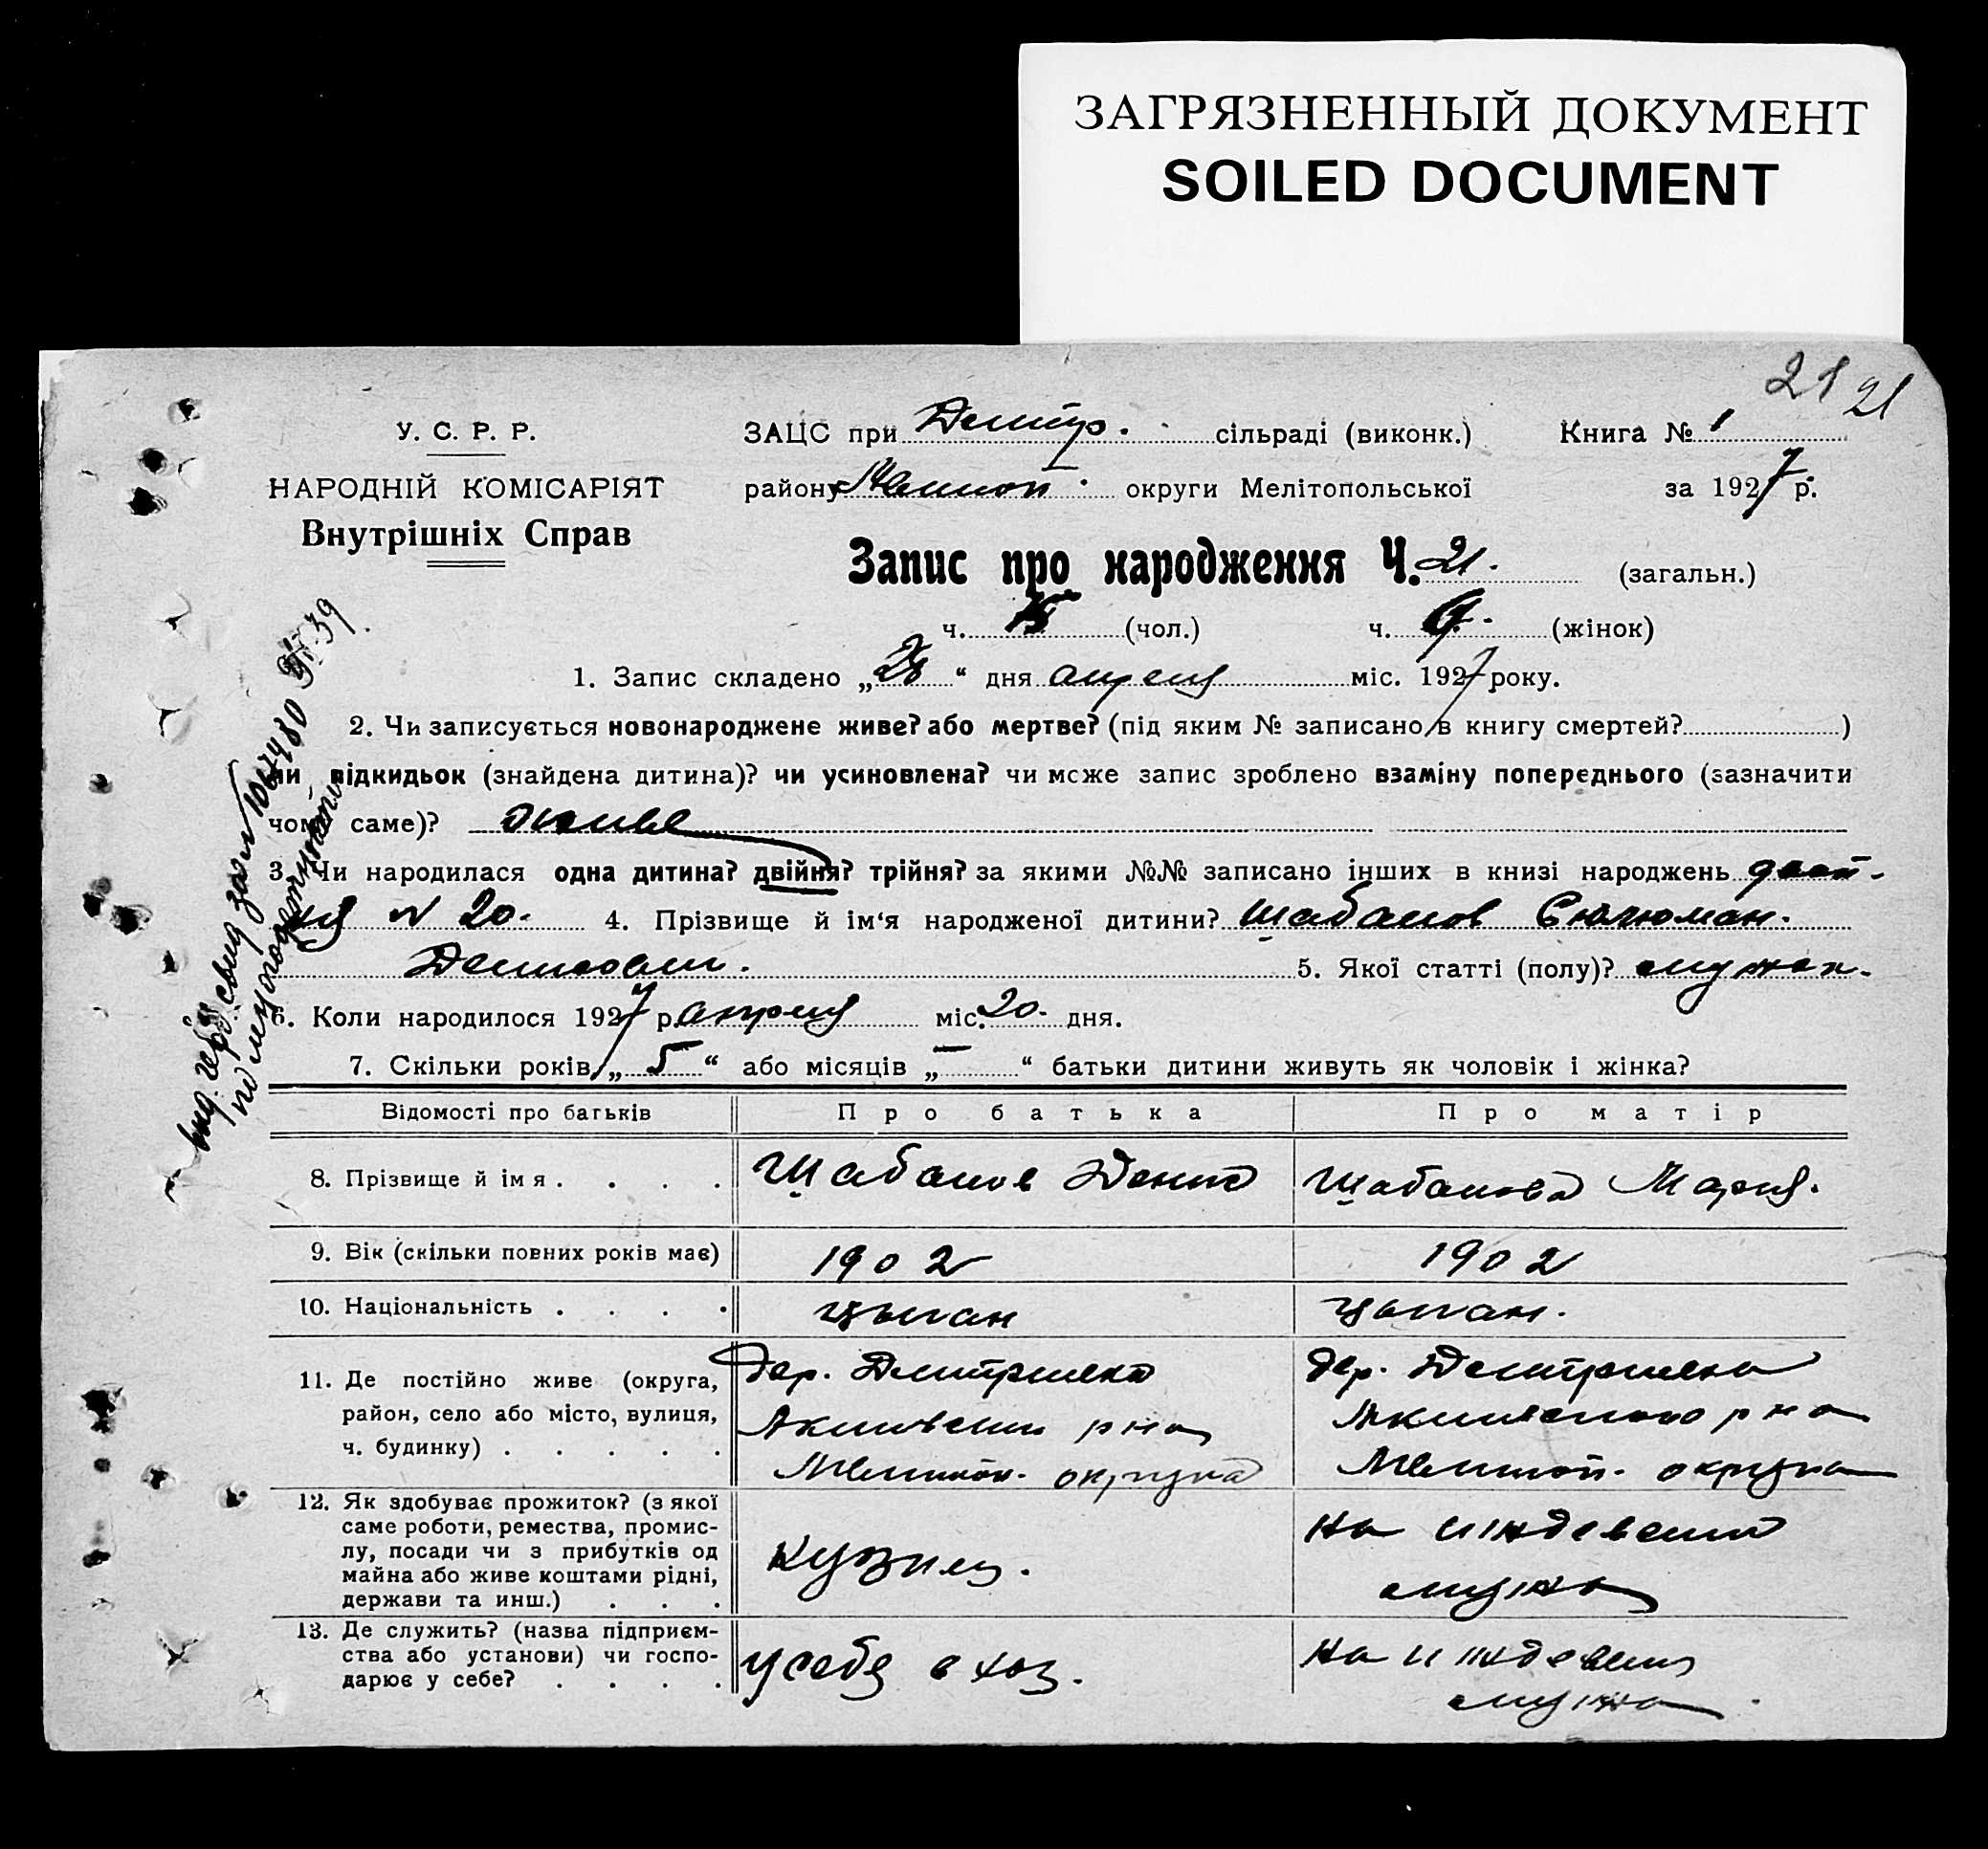 ЗАГРЯЗНЕННЫЙ ДОКУМЕНТ
SOILED DOCUMENT
21 21
У. С. Р. Р.
НАРОДНІЙ КОМІСАРІЯТ
Внутрішніх Справ
ЗАЦС при Дмитр. сільраді (виконк.) Книга № 1
району округи Мелітопольської за 1927 р.
Запис про народження Ч. 21. (загальн.)
ч. 15 (чол.) ч. (жінок)
1. Запис складено „28“ дня апреля міс. 1927 року.
2. Чи записується новонароджене живе? або мертве? (під яким № записано в книгу смертей? )
чи підкидьок (знайдена дитина)? чи усиновлена? чи може запис зроблено взаміну попереднього (зазначити
чому саме)? живе
3. Чи народилася одна дитина? двійня? трійня? за якими №№ записано інших в книзі народжень двой-
ня N 20. 4. Прізвище й ім‘я народженої дитини? Шабанов Сюлюман.
5. Якої статті (полу)? мужск.
6. Коли народилося 1927 р. апреля міс. 20. дня.
7. Скільки років „5“ або місяців „—“ батьки дитини живуть як чоловік і жінка?
Відомості про батьків Про батька Про матір
8. Прізвище й імя . . . . Шабанов Денис Шабанова Мария.
9. Вік (скільки повних років має) 1902 1902
10. Національність . . . . цыган цыган.
11. Де постійно живе (округа,
район, село або місто, вулиця,
ч. будинку) . . . . .
дер. Дмитриевка
Акимовский р на
Мелитоп. округа
дер. Дмитриевка
Акимовского р на
Мелитоп. округа
12. Як здобуває прожиток? (з якої
саме роботи, ремества, промис-
лу, посади чи з прибутків од
майна або живе коштами рідні,
держави та инш.) . . .
Кузнец.
На иждевении
мужа
13. Де служить? (назва підприєм-
ства або установи) чи госпо-
дарює у себе? . . . .
у себя в хоз.
На иждевении
мужа.